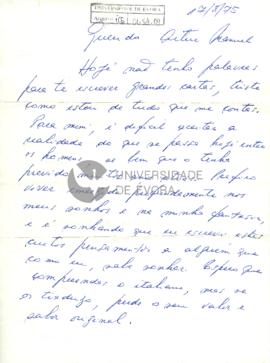 UNIVERSIDADE DE ÉVORA
17/3/75
Querido Artur Manuel
Hoje não tenho palavras
para te escrever grandes cartas, triste
como estou de tudo que me contas.
Para mim, é difícil aceitar a
realidade do que se passa hoje entre
os homens, se bem que o tenha
previsto
viver nos
meus sonhos e na minha fantasia,
e é sonhando que eu escrevi estes
curtos pensamentos a alguém que
como eu, sabe sonhar. Espero que
compreendas o italiano, mas se
os traduzo, perde o seu valor e
sabor original.
UNIVERSIDADE
DE ÉVORA